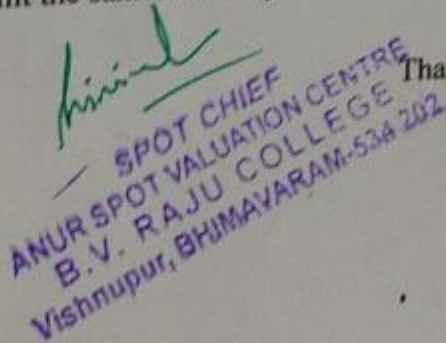 SPOT CHIEF
ANUR SPOT VALUATION CENTRE
B.V. RAJU COLLEGE
Vishnupur, BHIMAVARAM-534 202
Tha